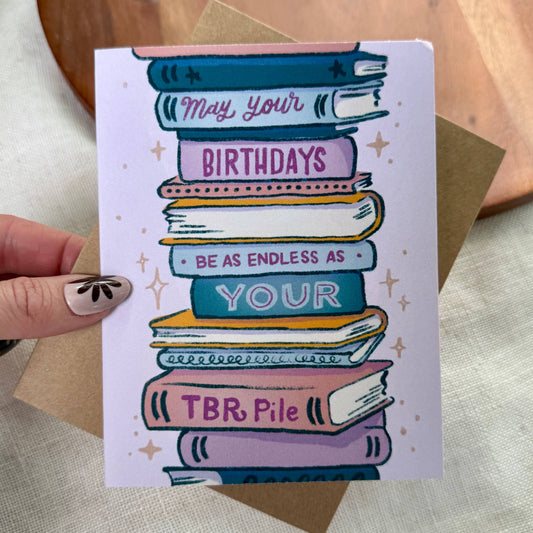 May Your
BIRTHDAYS
BE AS ENDLESS AS
YOUR
TBR Pile